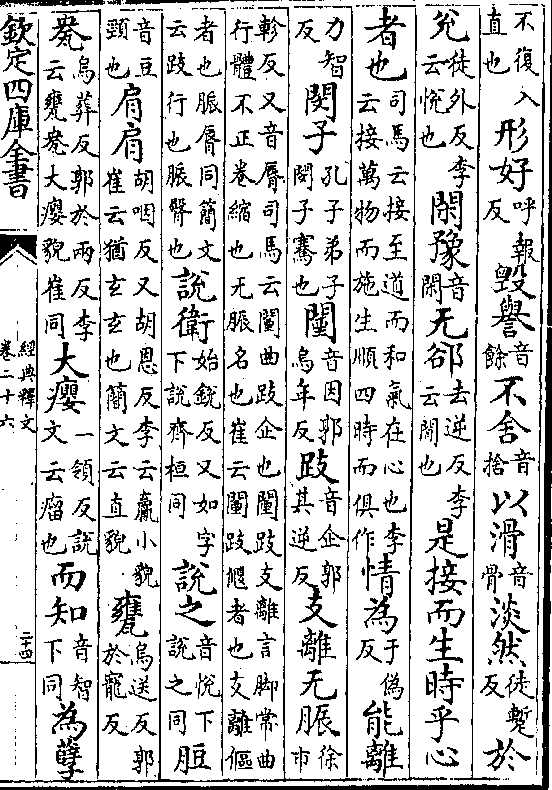 不復入直也形好呼報反毀譽音餘不舍音捨以滑音骨淡然徒暫反於
兌徒外反李云悅也閒豫音閑无郤去逆反李云閒也是接而生時乎心
者也司馬云接至道而和氣在心也李云接萬物而施生順四時而俱作情為于偽反能離
力智反閔子孔子弟子閔子騫也闉音因郭烏年反跂音企郭其逆反支離无脤徐市
軫反又音脣司馬云闉曲跂企也闉跂支離言脚常曲行體不正卷縮也无脤名也崔云闉跂偃者也支離傴
者也脤脣同簡文云跂行也脤臀也說衛始銳反又如字下說齊桓同說之音悅下說之同脰
音豆頸也肩肩胡咽反又胡恩反李云羸小貌崔云猶玄玄也簡文云直貌甕烏送反郭於寵反
㼜烏葬反郭於兩反李云甕㼜大癭貌崔同大癭一領反說文云瘤也而知音智下同為孽
欽定四庫全書
經典釋文
卷二十六
二十四